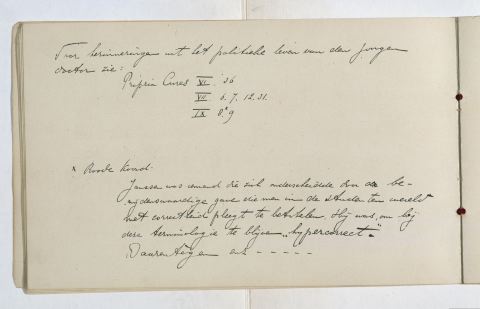 Voor herinneringen uit het politieke leven van den jongen
doctor zie:
Propria Cures VI. 36
VII. 6. 7. 12. 31.
IX 8* 9
x Roode Hond.
Janssen was iemand die zich onderscheidde door de be-
nijdenswaardige gave die men in de studenten wereld
met correctheid pleegt te betitelen. Hij was, om bij
deze terminologie te blijven „hypercorrect".
Daarentegen en - - - - -